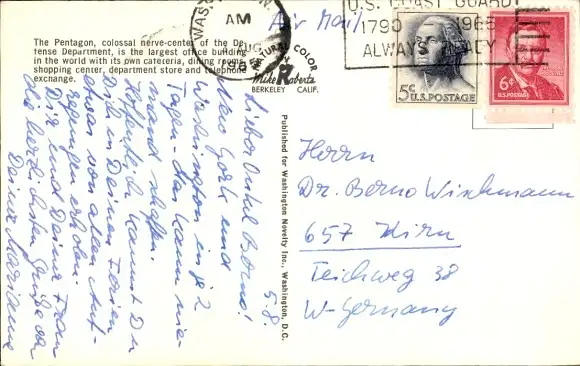 The Pentagon, colossal nerve-center of the De-
fense Department, is the largest office building
in the world with its own cafeteria, dining rooms,
shopping center, department store and telephone
exchange.
WAS
AM
AUG
Air Mail
U.S. COAST GUARD
1790 1965
ALWAYS READY
NATURAL COLOR
Mike Roberts
BERKELEY CALIF.
5c U.S. POSTAGE
6c
U.S. POSTAGE
Published for Washington Novelty Inc., Washington, D.C.
5.8.
Lieber Onkel Berno!
New York und
Washington in je 2
Tagen - das kann nie-
mand schaffen.
Hoffentlich kannst Du
Dich in Deinen Ferien
etwas von allen Auf-
regungen erholen.
Dir und Deiner Frau
die herzlichsten Grüße von
Deiner Marianne
Herrn
Dr. Berno Winkmann
657 Kirn
Teichweg 38
W-Germany